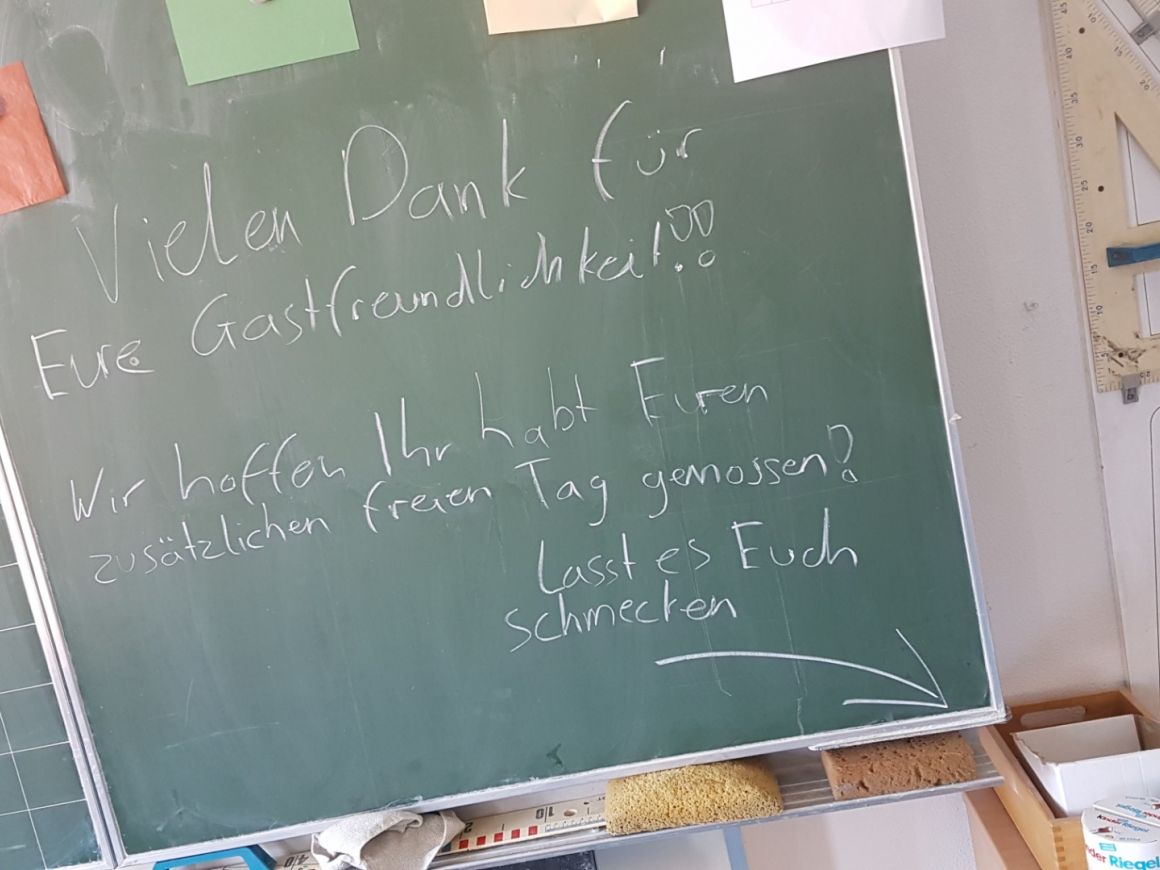 Vielen Dank für
Eure Gastfreundlichkeit!!
Wir hoffen Ihr habt Euren
zusätzlichen freien Tag genossen!
Lasst es Euch
schmecken
kinder Riegel